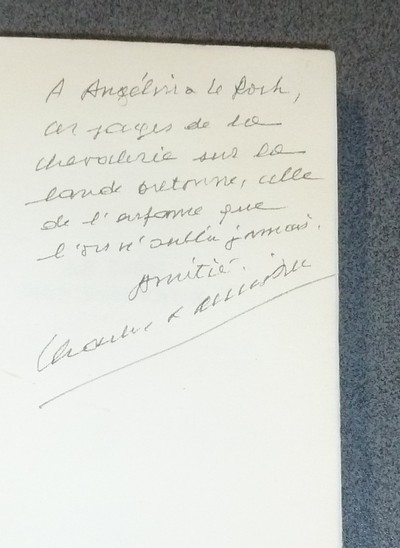 A Angélina Le Roch,
ces pages de la
chevalerie sur la
lande bretonne, celle
de l'enfance que
l'on n'oublie jamais.
Amitié.
Charles